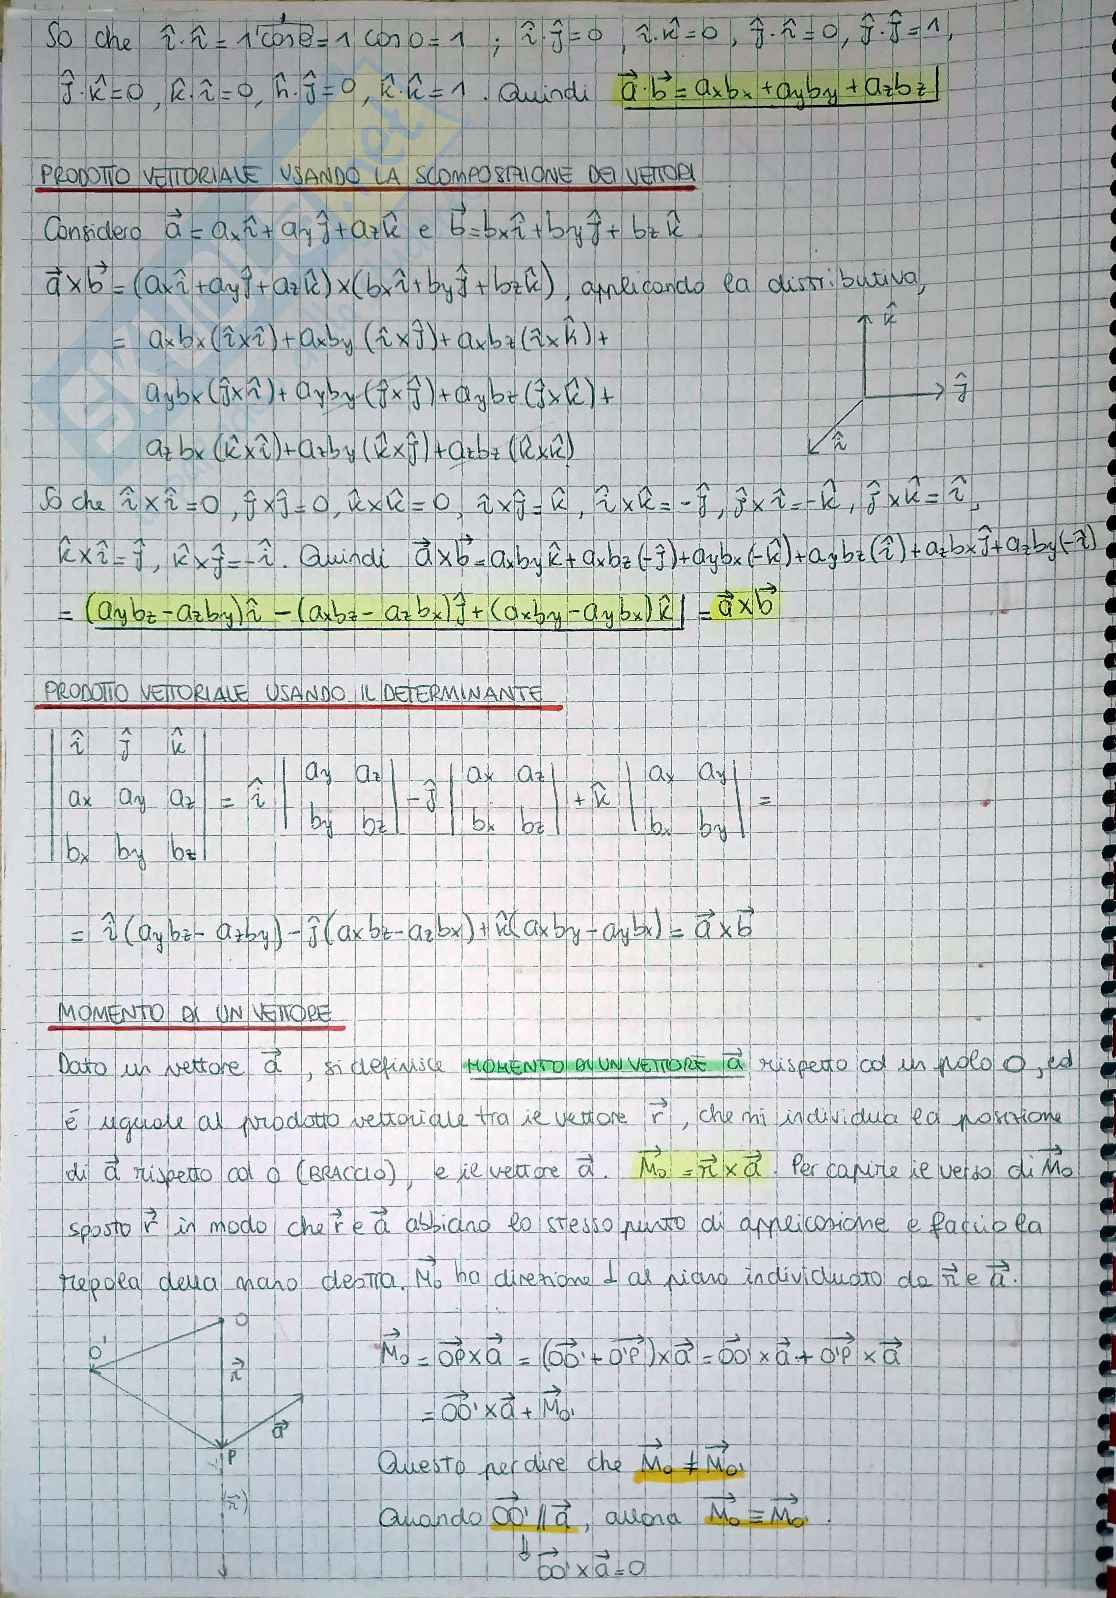 So che î·î = 1·1cosθ = 1 cos0 = 1 ; î·ĵ=0 , î·k̂=0 , ĵ·î=0, ĵ·ĵ=1,
ĵ·k̂=0, k̂·î=0, k̂·ĵ=0, k̂·k̂=1. Quindi a⃗·b⃗ = axbx + ayby + azbz
PRODOTTO VETTORIALE USANDO LA SCOMPOSIZIONE DEI VETTORI
Considero a⃗ = axî + ayĵ + azk̂ e b⃗ = bxî + byĵ + bzk̂.
a⃗×b⃗ = (axî+ayĵ+azk̂)×(bxî+byĵ+bzk̂), applicando la distributiva,
= axbx(î×î)+axby(î×ĵ)+axbz(î×k̂)+
aybx(ĵ×î)+ayby(ĵ×ĵ)+aybz(ĵ×k̂)+
azbx(k̂×î)+azby(k̂×ĵ)+azbz(k̂×k̂)
k̂
ĵ
î
So che î×î=0, ĵ×ĵ=0, k̂×k̂=0, î×ĵ=k̂, î×k̂=-ĵ, ĵ×î=-k̂, ĵ×k̂=î,
k̂×î=ĵ, k̂×ĵ=-î. Quindi a⃗×b⃗ = axbyk̂+axbz(-ĵ)+aybx(-k̂)+aybz(î)+azbxĵ+azby(-î)
= (aybz-azby)î - (axbz-azbx)ĵ + (axby-aybx)k̂ = a⃗×b⃗
PRODOTTO VETTORIALE USANDO IL DETERMINANTE
| î ĵ k̂ |
| ax ay az | = î | ay az | - ĵ | ax az | + k̂ | ax ay | =
| by bz | | bx bz | | bx by |
| bx by bz |
= î(aybz-azby)-ĵ(axbz-azbx)+k̂(axby-aybx) = a⃗×b⃗
MOMENTO DI UN VETTORE
Dato un vettore a⃗, si definisce MOMENTO DI UN VETTORE a⃗ rispetto ad un polo O, ed
è uguale al prodotto vettoriale tra il vettore r⃗, che mi individua la posizione
di a⃗ rispetto ad O (BRACCIO), e il vettore a⃗. M⃗o = r⃗×a⃗. Per capire il verso di M⃗o
sposto r⃗ in modo che r⃗ e a⃗ abbiano lo stesso punto di applicazione e faccio la
regola della mano destra. M⃗o ha direzione ⊥ al piano individuato da r⃗ e a⃗.
O
O'
r⃗
a⃗
P
(r⃗)
M⃗o = OP⃗×a⃗ = (OO'⃗+O'P⃗)×a⃗ = OO'⃗×a⃗+O'P⃗×a⃗
= OO'⃗×a⃗+M⃗o'
Questo per dire che M⃗o ≠ M⃗o'
Quando OO'⃗ // a⃗, allora M⃗o ≡ M⃗o'.
↓
OO'⃗×a⃗=0